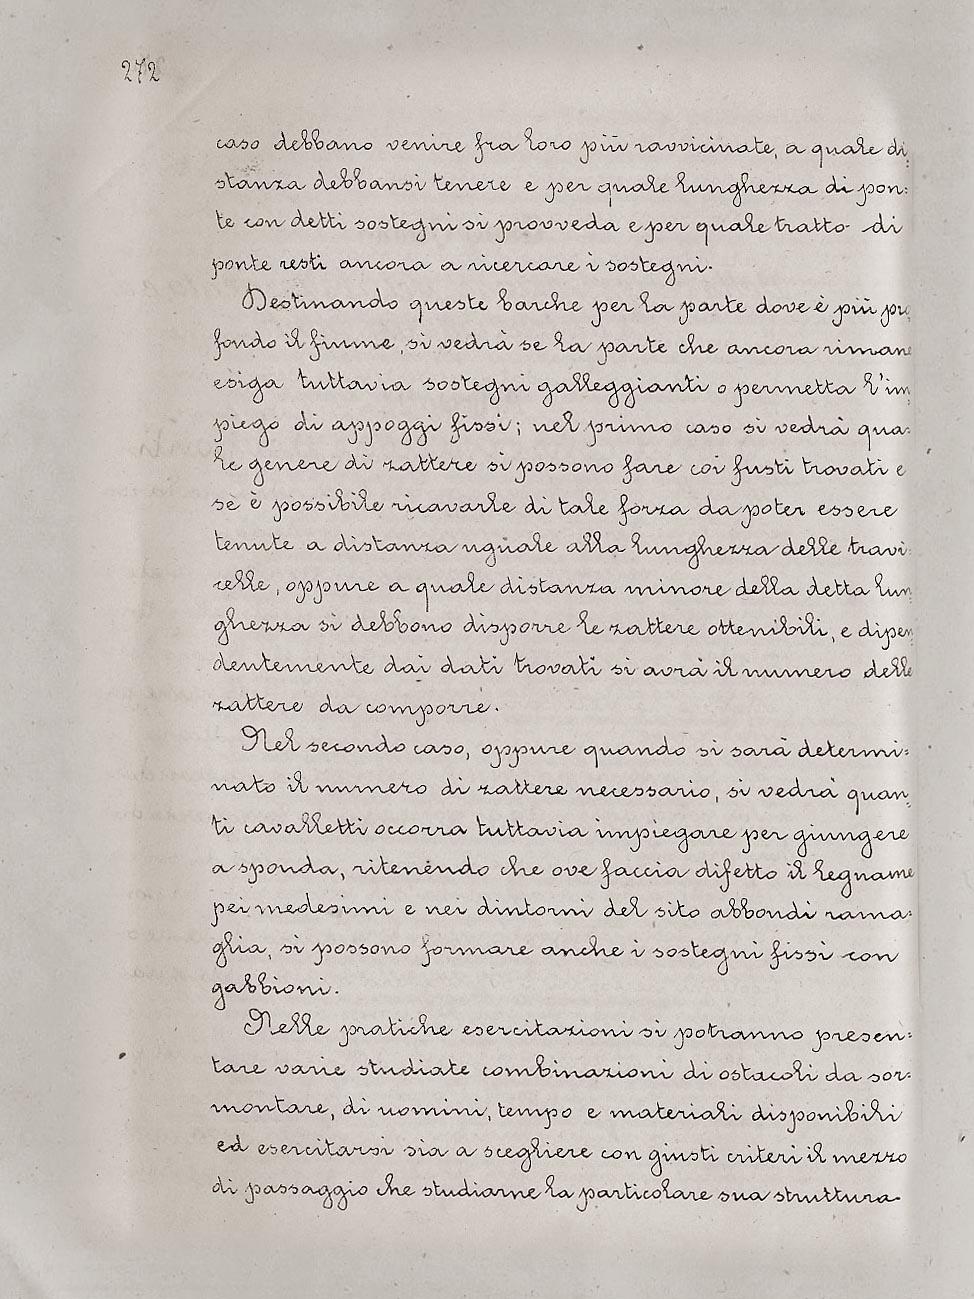 272
caso debbano venire fra loro più ravvicinate, a quale di=
stanza debbansi tenere e per quale lunghezza di pon=
te con detti sostegni si provveda e per quale tratto di
ponte resti ancora a ricercare i sostegni.
Destinando queste barche per la parte dove è più pro
fondo il fiume, si vedrà se la parte che ancora rimane
esiga tuttavia sostegni galleggianti o permetta l'im=
piego di appoggi fissi; nel primo caso si vedrà qua=
le genere di zattere si possono fare coi fusti trovati e
se è possibile ricavarle di tale forza da poter essere
tenute a distanza uguale alla lunghezza delle travi=
celle, oppure a quale distanza minore della detta lun=
ghezza si debbono disporre le zattere ottenibili, e dipen
dentemente dai dati trovati si avrà il numero delle
zattere da comporre.
Nel secondo caso, oppure quando si sarà determi=
nato il numero di zattere necessario, si vedrà quan=
ti cavalletti occorra tuttavia impiegare per giungere
a sponda, ritenendo che ove faccia difetto il legname
pei medesimi e nei dintorni del sito abbondi rama=
glia, si possono formare anche i sostegni fissi con
gabbioni.
Nelle pratiche esercitazioni si potranno presen=
tare varie studiate combinazioni di ostacoli da sor=
montare, di uomini, tempo e materiali disponibili
ed esercitarsi sia a scegliere con giusti criteri il mezzo
di passaggio che studiarne la particolare sua struttura.